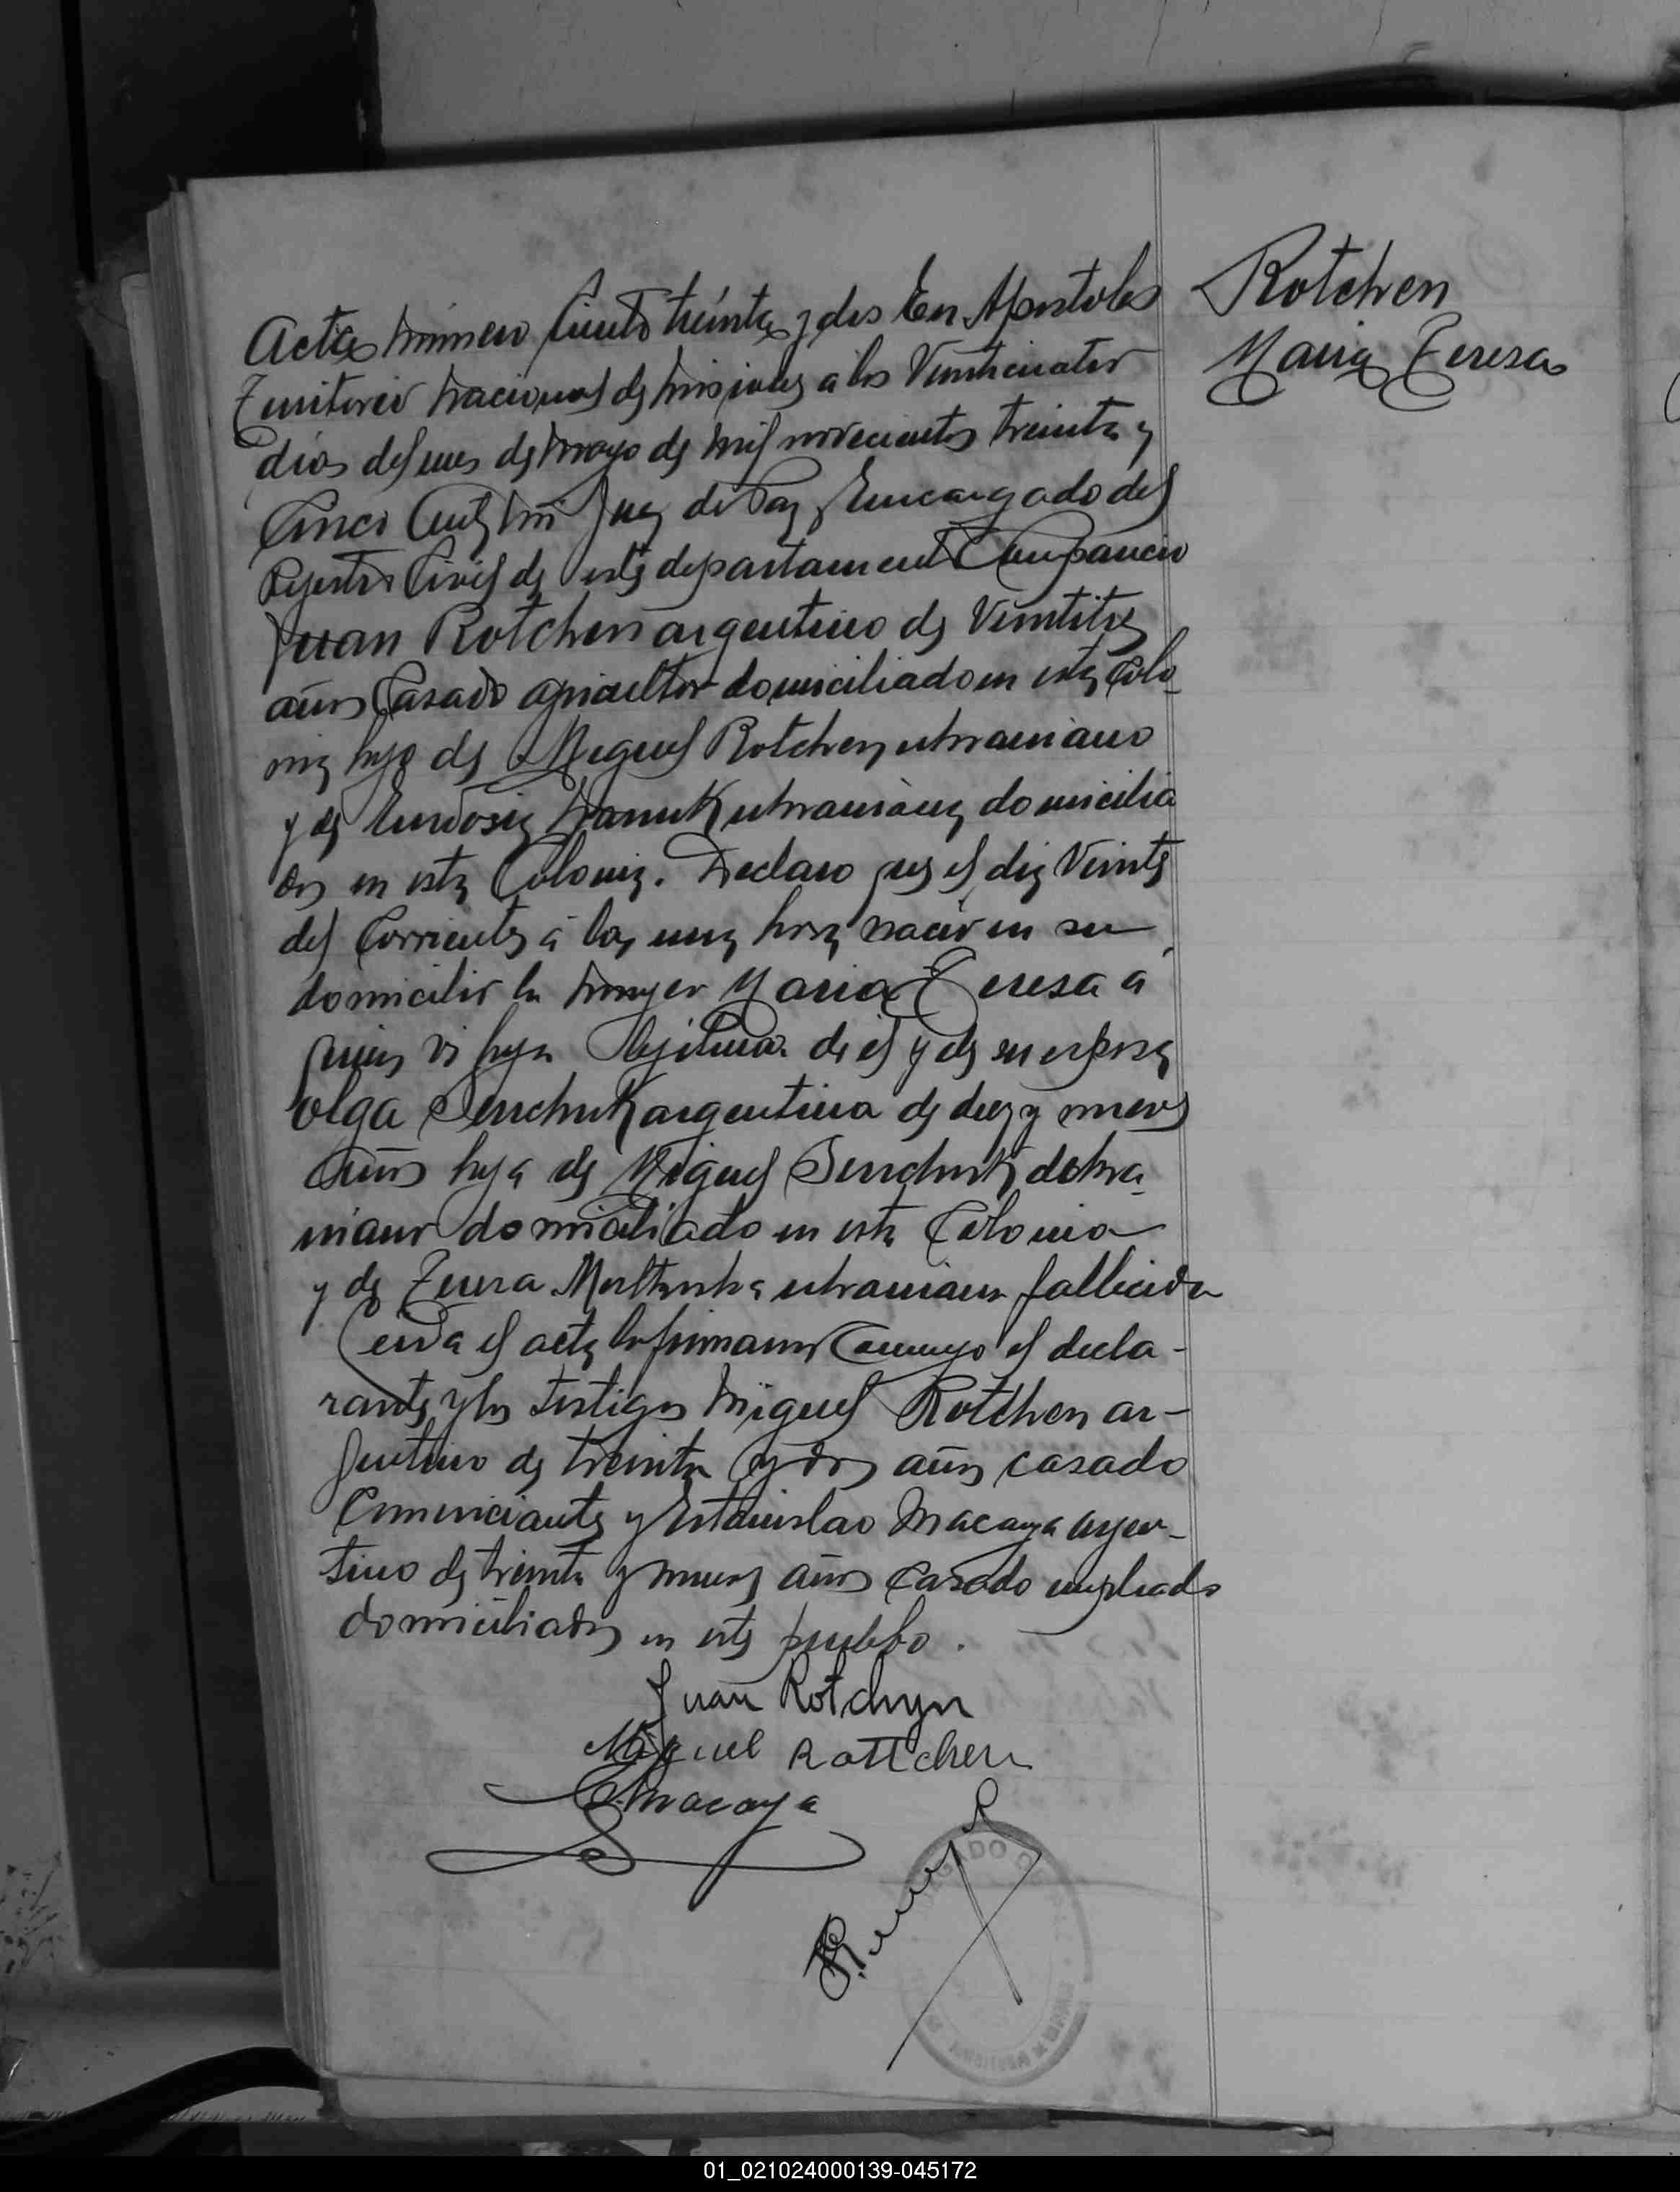 Acta número Ciento treinta y dos En Apostoles
Territorio Nacional de Misiones a los Veinticuatro
dias del mes de Mayo de Mil novecientos treinta y
Cinco Ante Mi Juez de Paz y Encargado del
Rejistro Civil de este departamento Comparecio
Juan Rotchen argentino de Veintitres
años Casado agricultor domiciliado en esta Colo-
nia hijo de Miguel Rotchen ukraniano
y de Eudosia ukraniana domicilia
dos en esta Colonia. Declaro que el dia Veinte
del Corriente a las una hora nació en su
domicilio la Mujer Maria Teresa a
quien vi hija lejitima de el y de su esposa
Olga Senchuk argentina de diez y nueve
años hija de Miguel Senchuk ukra-
niano domiciliado en esta Colonia
y de Teresa ukraniana fallecida
Leida el acta la firmaron Conmigo el decla-
rante y los testigos Miguel Rotchen ar-
gentino de treinta y dos años casado
Comerciante y Estanislao Macaya argen-
tino de treinta y nueve años Casado empleado
domiciliados en este pueblo.
Juan Rotchyn
Miguel Rottchen
E. Macaya
Rotchen
Maria Teresa
01_021024000139-045172